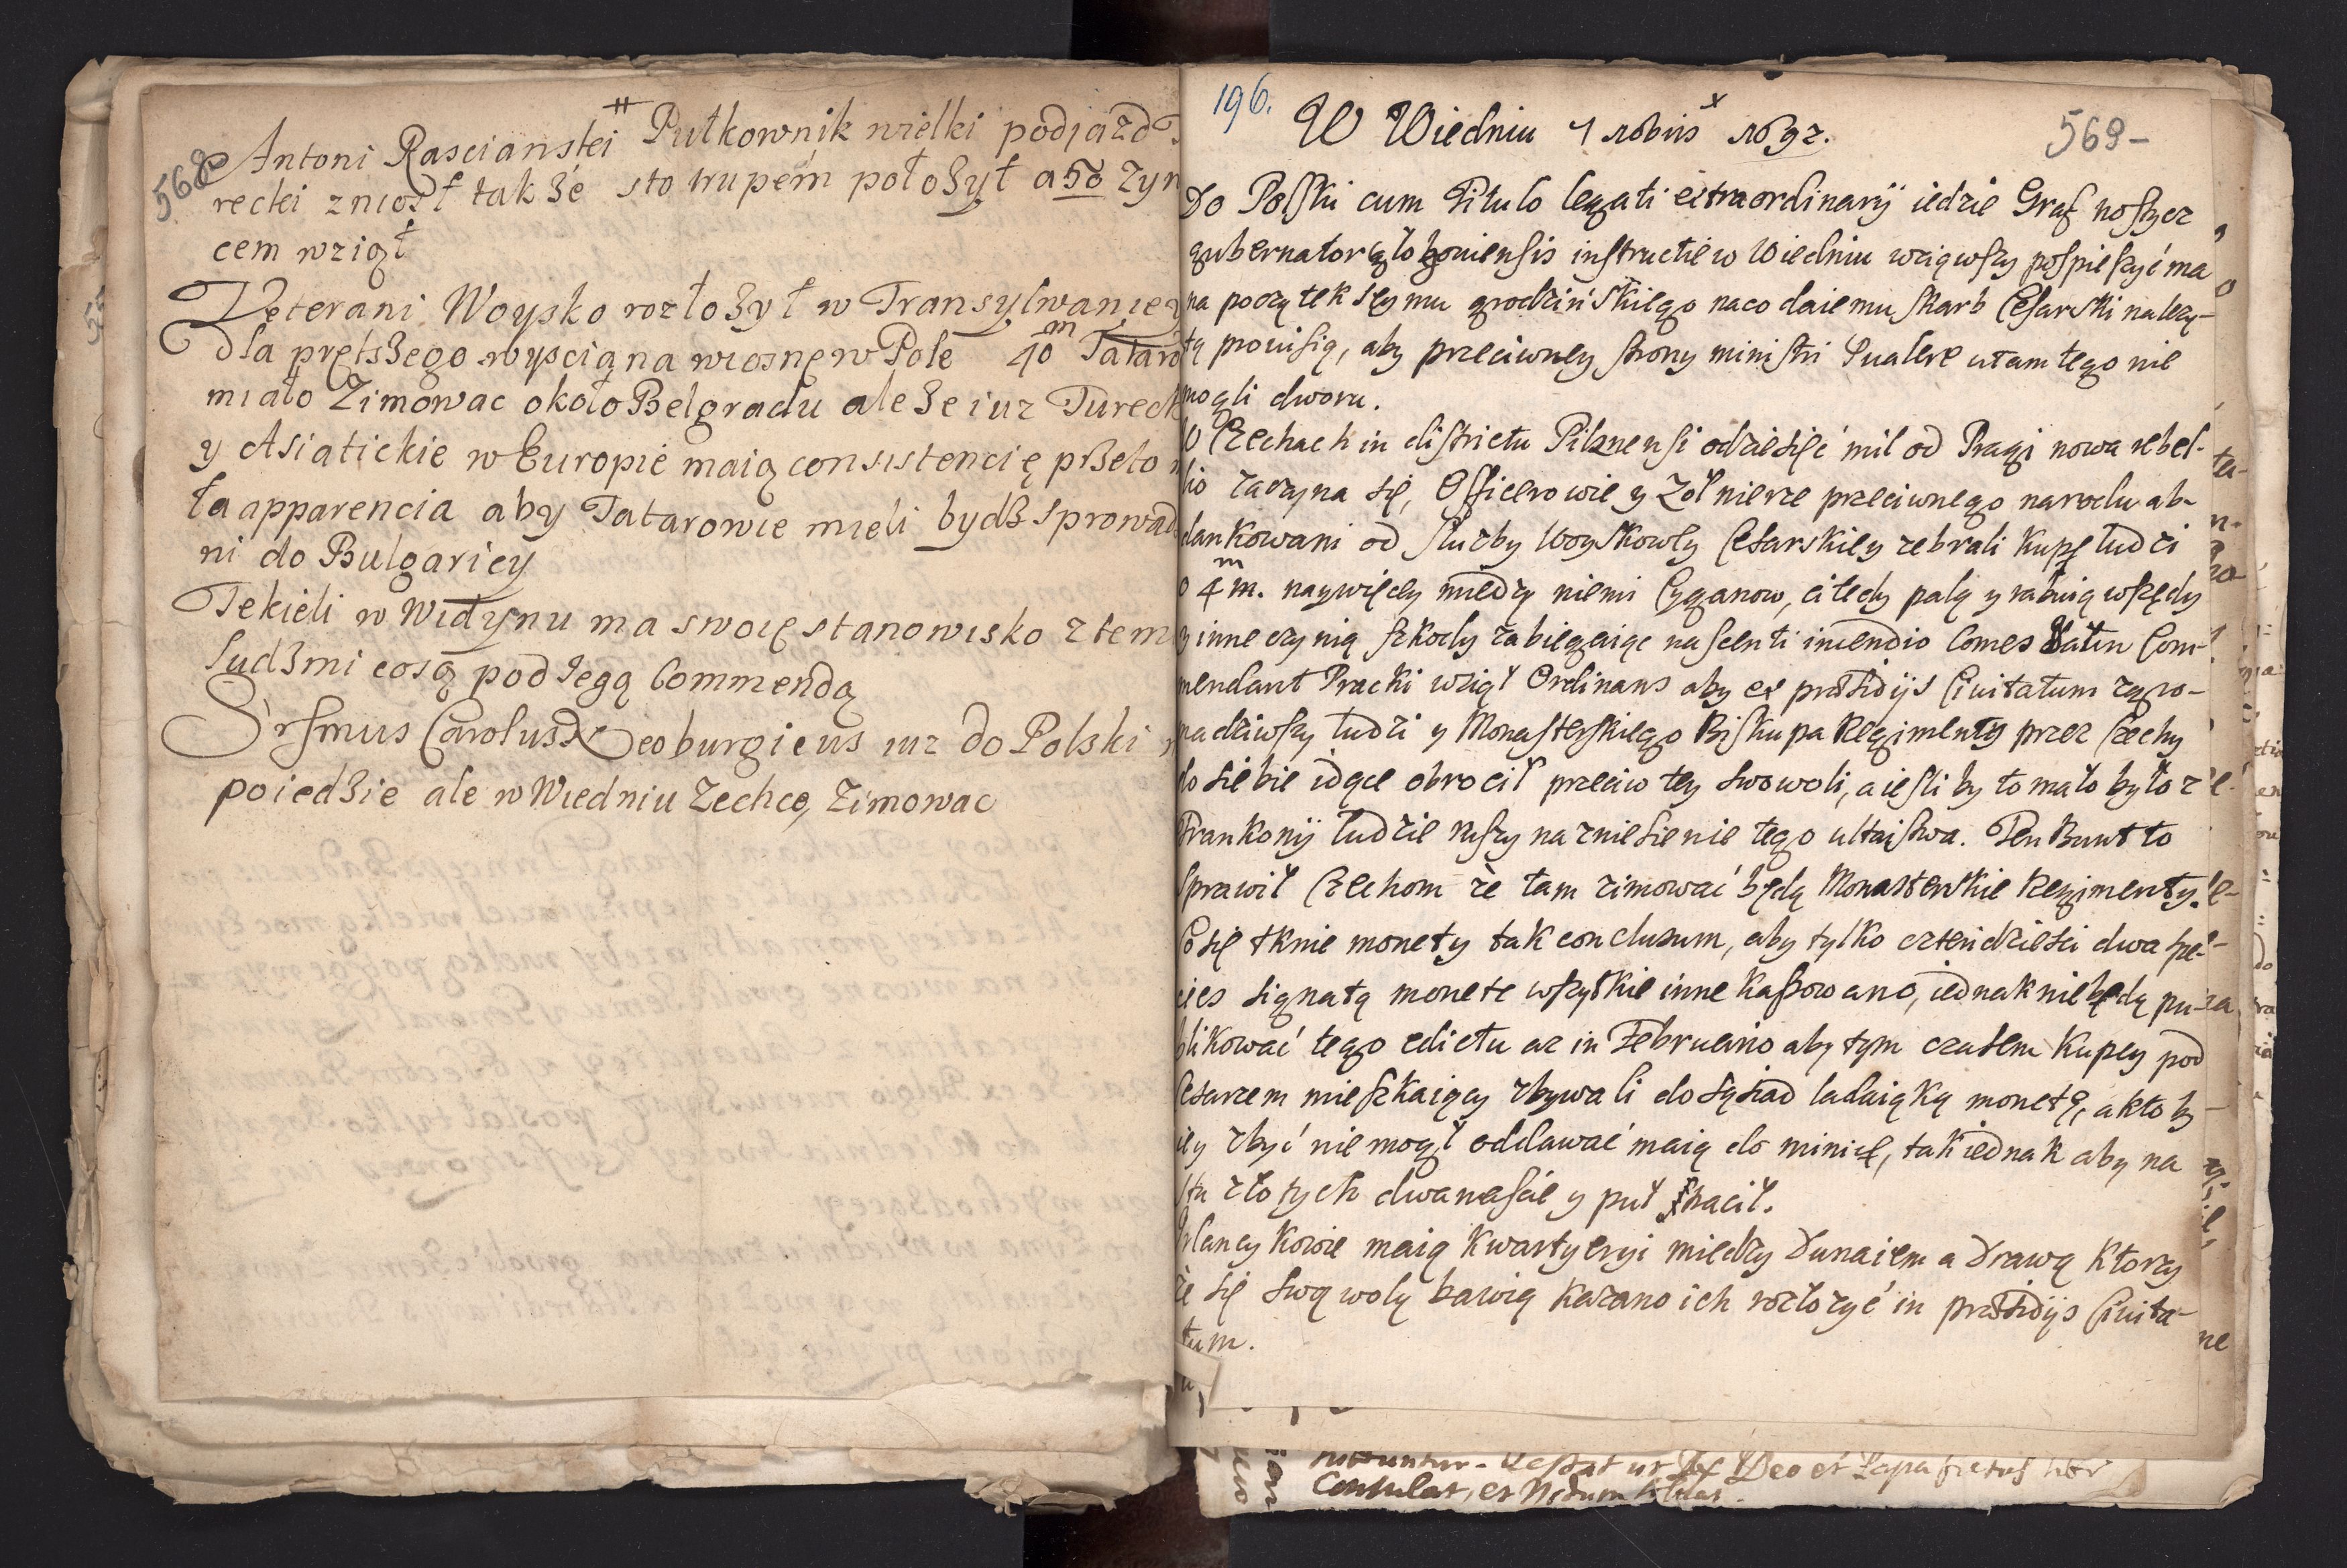 568
Antoni Rascianski Pułkownik wielki podjazd
recki zniosł także sto trupem położył a 50 żyw
cem wziął
Veterani Woysko rozłożył w Transylwaniey
dla prętszego wyscia na wiosnę w Pole 40 m Tataro
miało Zimowac około Belgradu ale że iuz Tureck
y Asiatickie w Europie maią consistencię przeto
ta apparencia aby Tatarowie mieli bydź sprowad
ni do Bulgariey
Tekieli w Widynu ma swoię stanowisko z tem
ludźmi co są pod iegą Commendą
Srsmus Carolus Neoburgicus iuz do Polski
poiedzie ale w Wiedniu Zechce Zimowac
196.
569-
W Wiedniu 7 xbris 1692.
Do Polski cum Titulo legati extraordinarij iedzie Graf noszycz
gubernator glogoviensis instructie w Wiedniu wziąwszy pospieszyć ma
na początek seymu grodzińskiego na co daie mu skarb Cesarski należy-
tą prouisią, aby przeciwney strony ministri
mogli dworu.
W Czechach in districtu Pilznensi o dziesięć mil od Pragi nowa rebel-
lio zaczyna się, Officerowie y żołnierze przeciwnego narodu ab-
dankowani od służby woyskowey Cesarskiey zebrali kupę ludzi
o 4 m. naywięcey miedzy niemi Cyganow, ci tedy palą y rabuią wszędy
y inne czynią szkody zabiegaiąc nascenti incendio Comes Com-
mendant Pracki wziął Ordinans aby ex præsidijs Ciuitatum zgro-
madziwszy ludzi y Monasterskiego Biskupa Regimenty przez Czechy
do siebie idące obrocił przeciw tey swowoli, a iesliby to mało było z
Frankonij ludzie ruszy na zniesienie tego ultaistwa. Ten Bunt to
sprawił Czechom że tam zimować będą Monasterskie Regimenty.
Co się tknie monety tak conclusum, aby tylko czterdziesci dwa spe-
cies signatą monetę wszytkie inne kassowano, iednak nie będą pu-
blikować tego edictu az in Februario aby tym czasem Kupcy pod
Cesarzem mieszkaiący zbywali do sąsiad ladaiąką monetę, a kto by
iey zbyć nie mogł oddawać maią do minice, tak iednak aby na
stu złotych dwanascie y puł stracił.
Irlanczykowie maią kwartyery miedzy Dunaiem a Drawą ktorzy
że się swą wolą bawią kazano ich rozłożyć in præsidijs Ciuita-
tum.